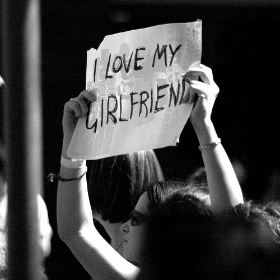 I LOVE MY
GIRLFRIEND